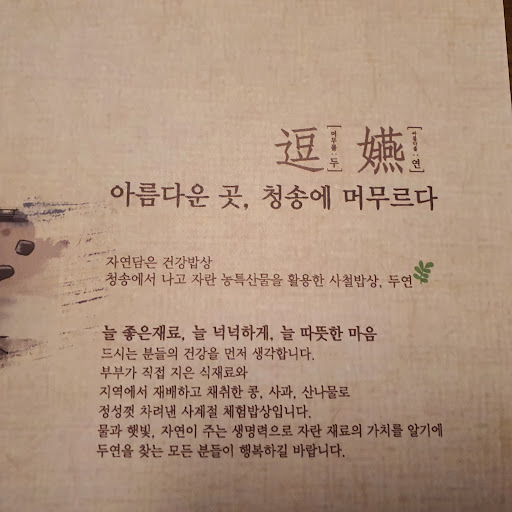 逗 [머무를 : 두] 嬿 [아름다울 : 연]
아름다운 곳, 청송에 머무르다
자연담은 건강밥상
청송에서 나고 자란 농특산물을 활용한 사철밥상, 두연
늘 좋은재료, 늘 넉넉하게, 늘 따뜻한 마음
드시는 분들의 건강을 먼저 생각합니다.
부부가 직접 지은 식재료와
지역에서 재배하고 채취한 콩, 사과, 산나물로
정성껏 차려낸 사계절 체험밥상입니다.
물과 햇빛, 자연이 주는 생명력으로 자란 재료의 가치를 알기에
두연을 찾는 모든 분들이 행복하길 바랍니다.